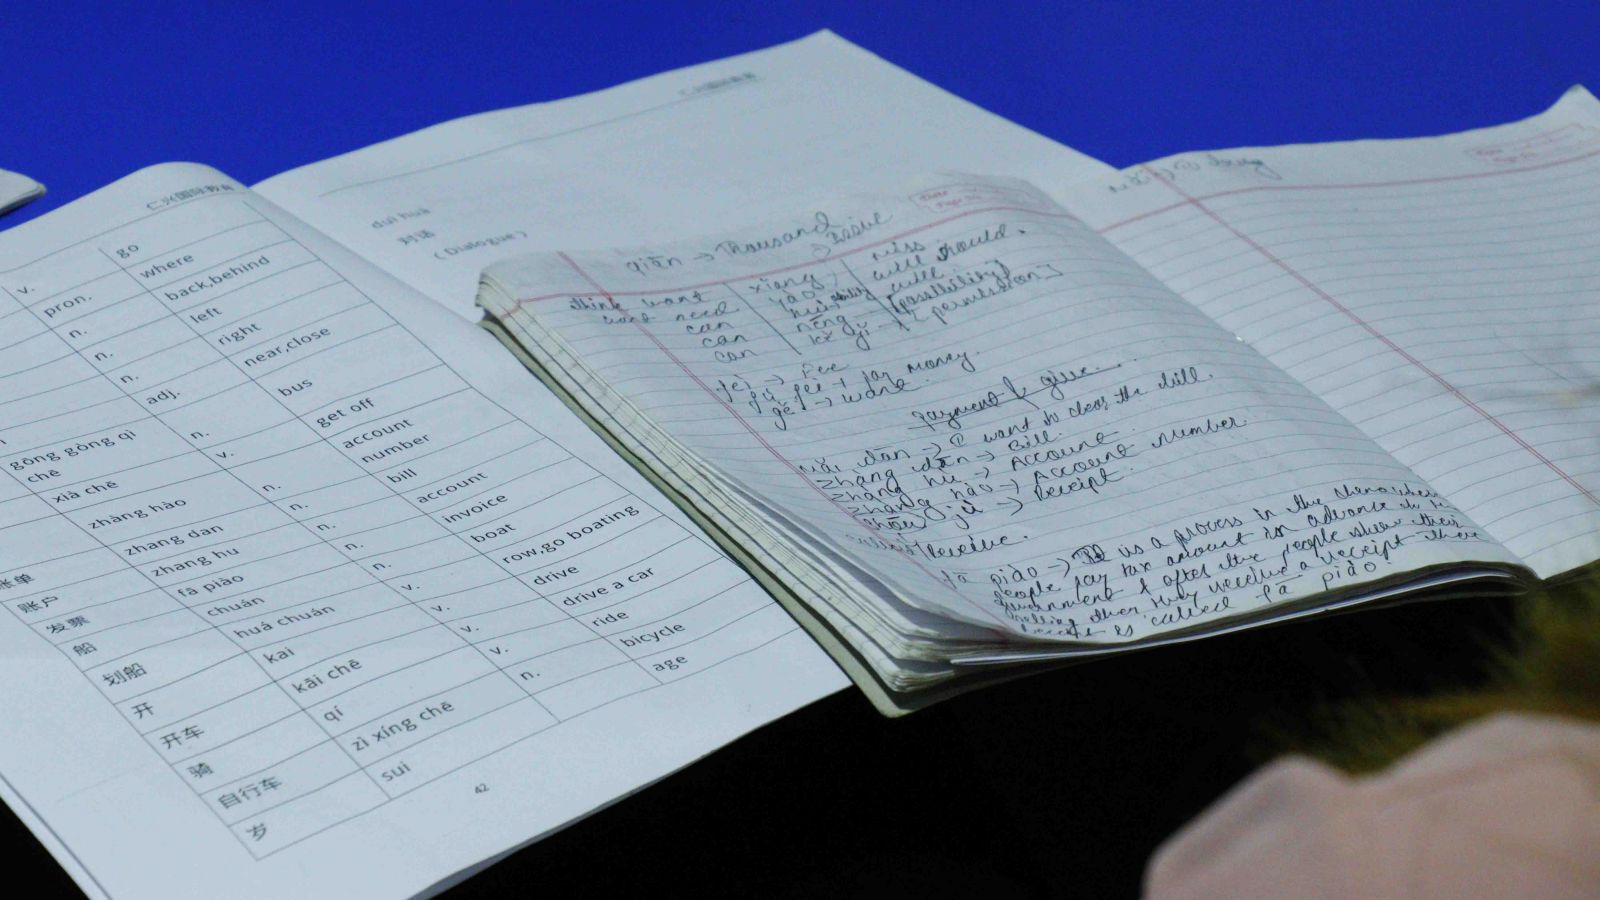 仁兴国际教育
v. go
pron. where
n. back,behind
n. left
n. right
adj. near,close
gōng gòng qì chē n. bus
xià chē v. get off
zhàng hào n. account number
账单 zhang dan n. bill
账户 zhang hu n. account
发票 fā piào n. invoice
船 chuán n. boat
划船 huá chuán v. row,go boating
开 kai v. drive
开车 kāi chē v. drive a car
骑 qí v. ride
自行车 zì xíng chē n. bicycle
岁 suì age
42
duì huà
对话
(Dialogue)
qiān → Thousand
think want xiǎng miss
want need yào will should.
can huì ability will
can néng → [possibility]
can kě yǐ → [permission]
fèi → Fee
fù fèi → pay money.
gěi →
Payment & give.
mǎi dān → I want to clear the bill.
zhàng dān → Bill.
zhàng hù → Account
zhàng hào → Account number.
shōu jù → Receipt.
Receive.
fā piào → It is a process in the china where
people pay tax amount in advance to the
government & after the people show their
they receive a receipt
is called fā piào.